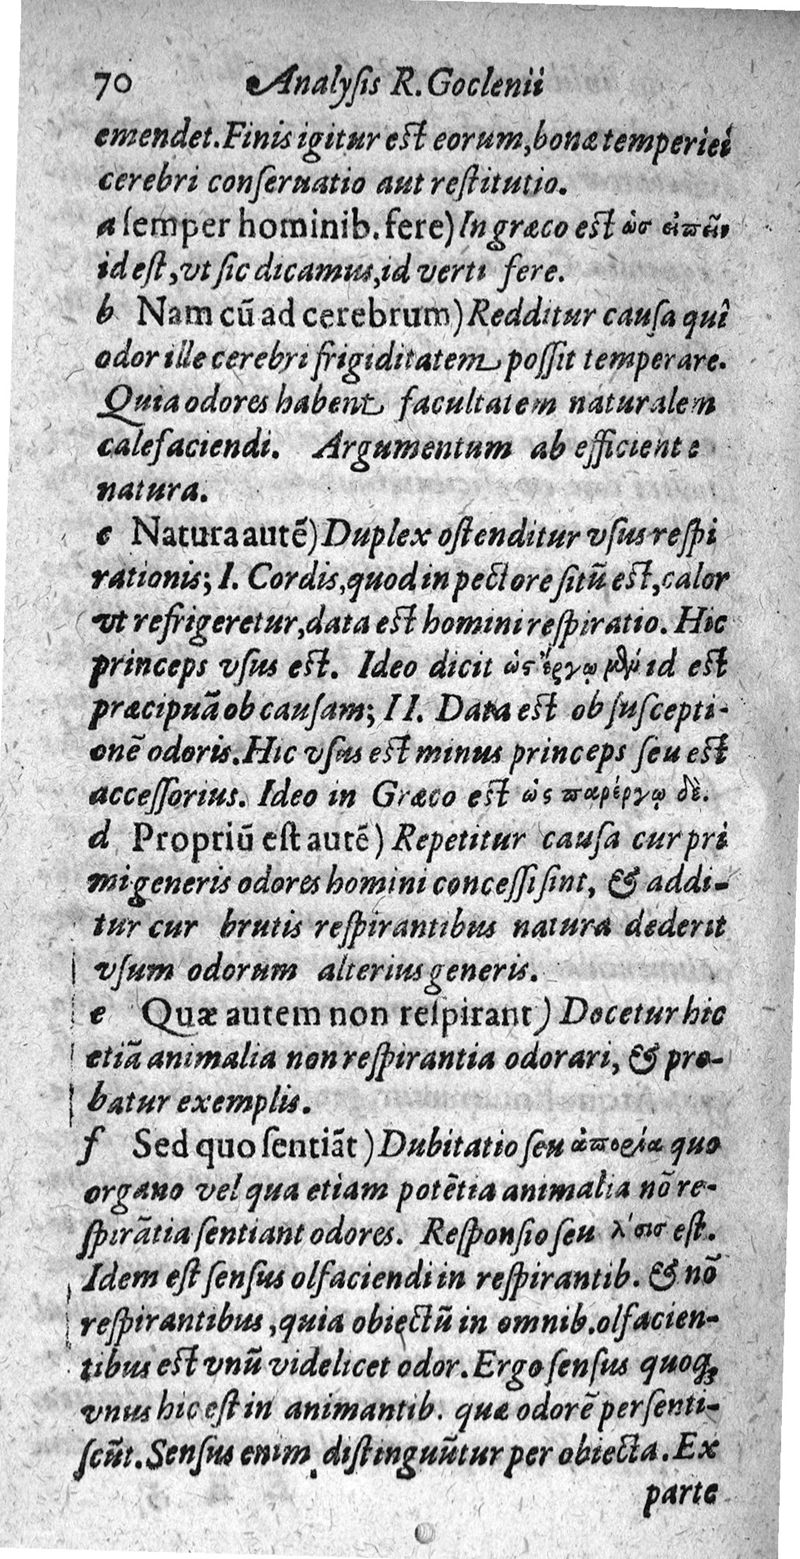 70 Analyſis R. Goclenii
emendet. Finis igitur eſt eorum, bonæ temperiei
cerebri conſeruatio aut reſtitutio.
a ſemper hominib. fere) In græco eſt ὡσ εἰπεῖν
id eſt, vt ſic dicamus, id verti fere.
b Nam cũ ad cerebrum) Redditur cauſa qui
odor ille cerebri frigiditatem poſſit temperare.
Quia odores habent facultatem naturalem
calefaciendi. Argumentum ab efficiente
natura.
c Natura autẽ) Duplex oſtenditur vſus reſpi
rationis; I. Cordis, quod in pectore ſitũ eſt, calor
vt refrigeretur, data eſt homini reſpiratio. Hic
princeps vſus eſt. Ideo dicit ὡς ἔργῳ id eſt
præcipuã ob cauſam; II. Data eſt ob ſuſcepti-
onẽ odoris. Hic vſus eſt minus princeps ſeu eſt
acceſſorius. Ideo in Græco eſt ὡς παρέργῳ δὲ.
d Propriũ eſt autẽ) Repetitur cauſa cur pri
mi generis odores homini conceſſi ſint, & addi-
tur cur brutis reſpirantibus natura dederit
vſum odorum alterius generis.
e Quæ autem non reſpirant) Docetur hic
etiã animalia non reſpirantia odorari, & pro-
batur exemplis.
f Sed quo ſentiãt) Dubitatio ſeu ἀπορία quo
organo vel qua etiam potẽtia animalia nõ re-
ſpirãtia ſentiant odores. Reſponſio ſeu λύσισ eſt.
Idem eſt ſenſus olfaciendi in reſpirantib. & nõ
reſpirantibus, quia obiectũ in omnib. olfacien-
tibus eſt vnũ videlicet odor. Ergo ſenſus quoq;
vnus hic eſt in animantib. quæ odorẽ perſenti-
ſcũt. Senſus enim diſtinguũtur per obiecta. Ex
parte